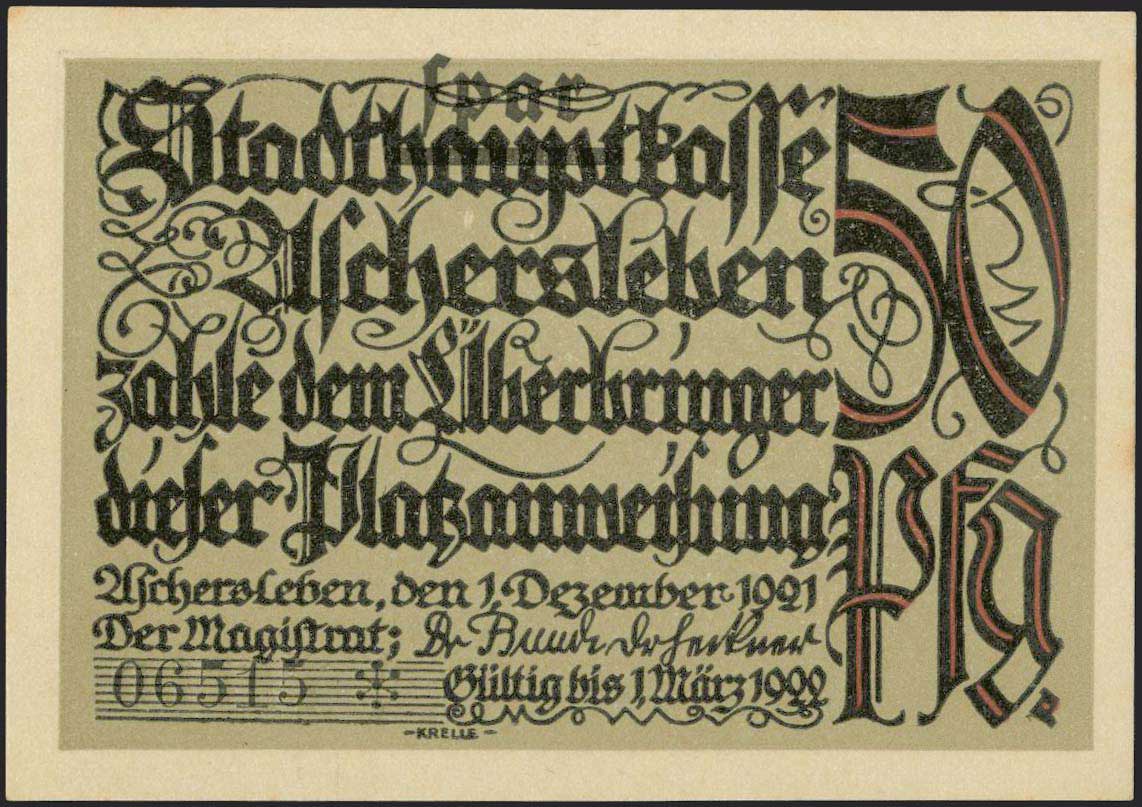 spar
Stadthauptkasse
Aschersleben
zahle dem Überbringer
dieser Platzanweisung
50
Pfg.
Aschersleben, den 1. Dezember 1921
Der Magistrat;
06515 *
Gültig bis 1. März 1922
-KRELLE-